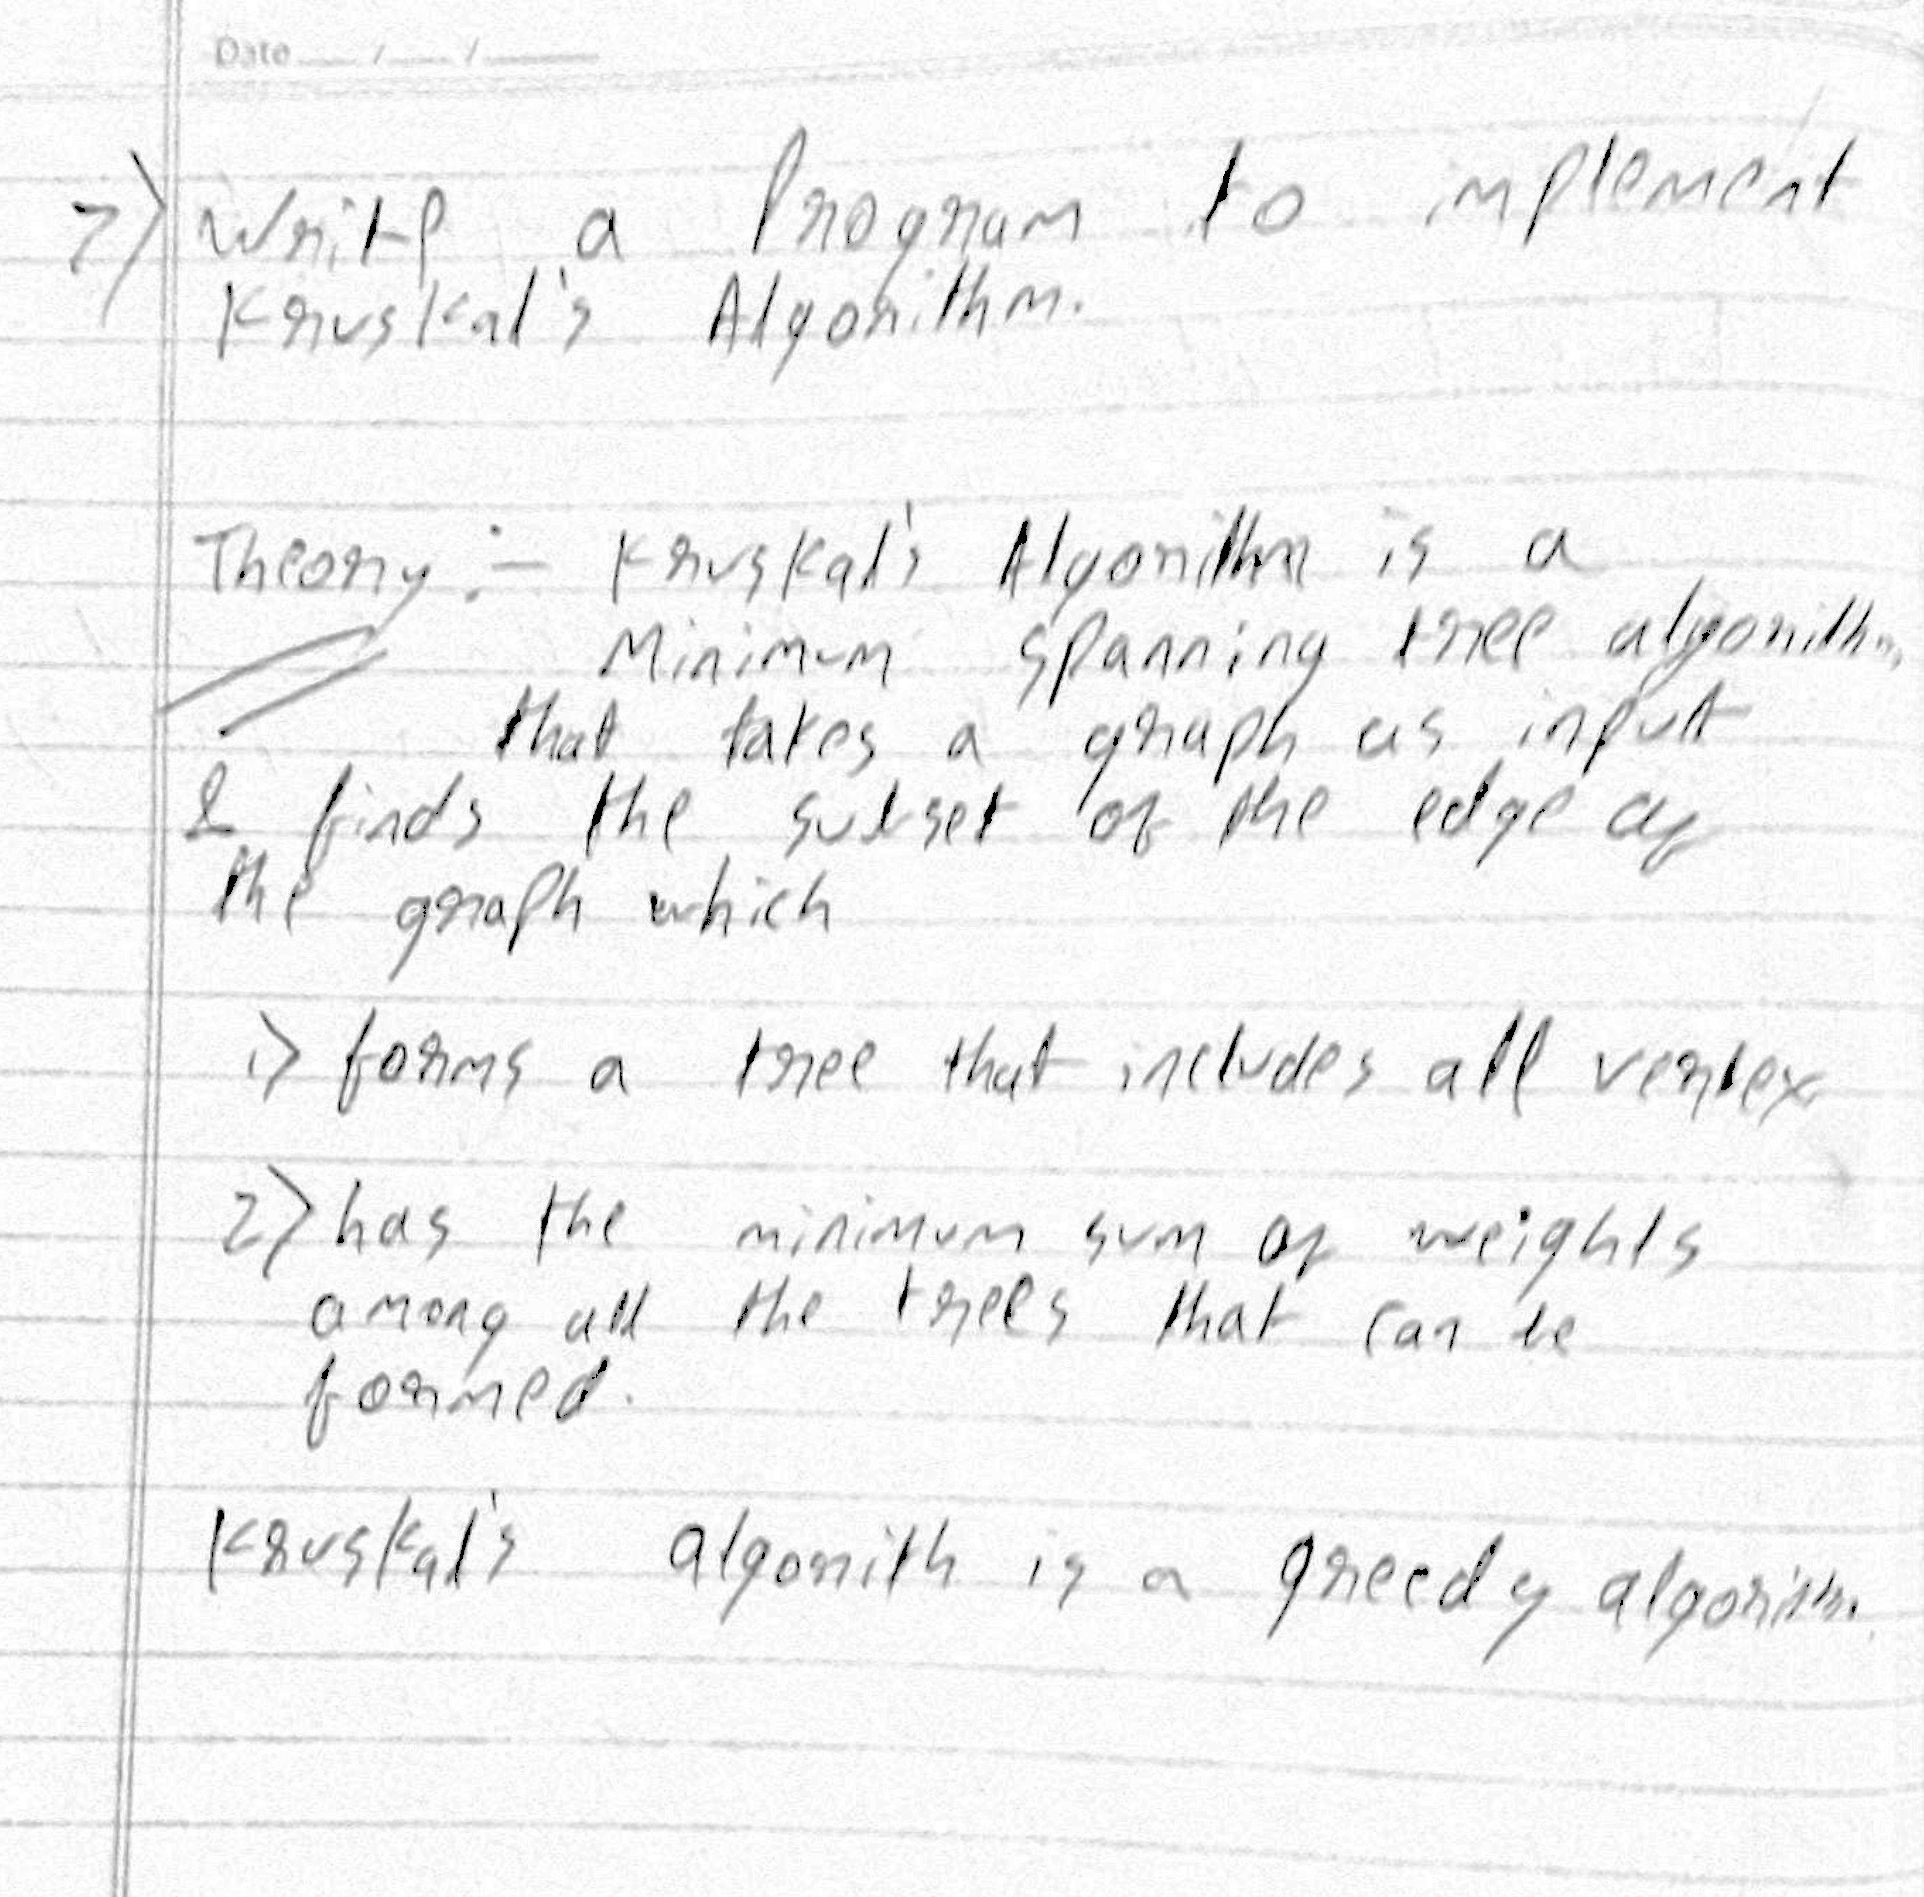 Date ___/___/_____
7) Write a Program to implement
Kruskal's Algorithm.
Theory :- Kruskal's Algorithm is a
Minimum spanning tree algorithm
that takes a graph as input
& finds the subset of the edge of
the graph which
1) forms a tree that includes all vertex
2) has the minimum sum of weights
among all the trees that can be
formed.
Kruskal's algorith is a greedy algorithm.